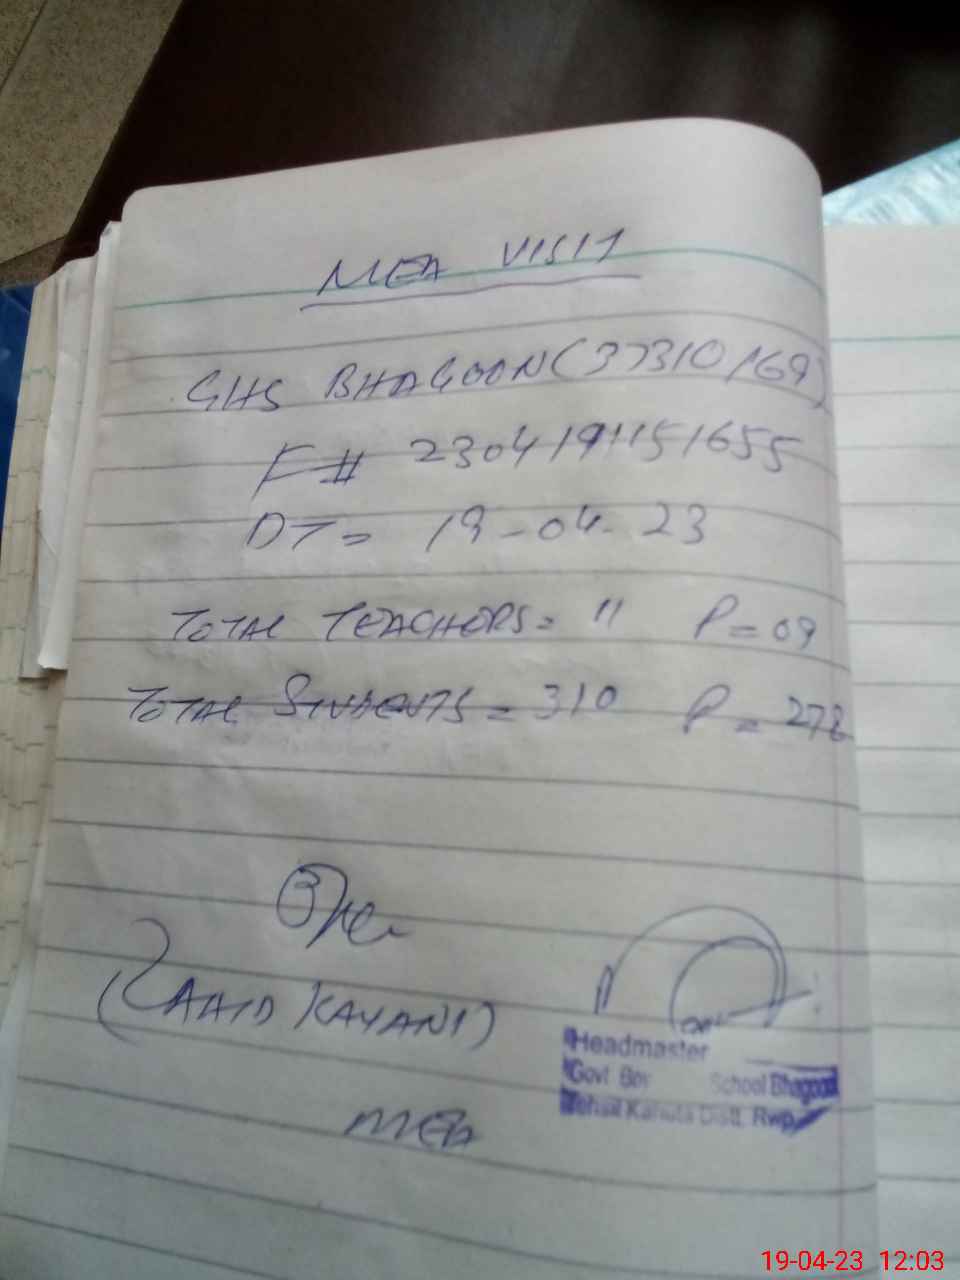 MEA VISIT
GHS BHAGOON (37310169)
F# 2304191151655
DT = 19-04-23
TOTAL TEACHORS = 11 P = 09
TOTAL STUDENTS = 310 P = 278
(ZAHID KAYANI)
MEA
Headmaster
Govt Boy School Bhagoon
Tehsil Kahuta Distt. Rwp
19-04-23 12:03